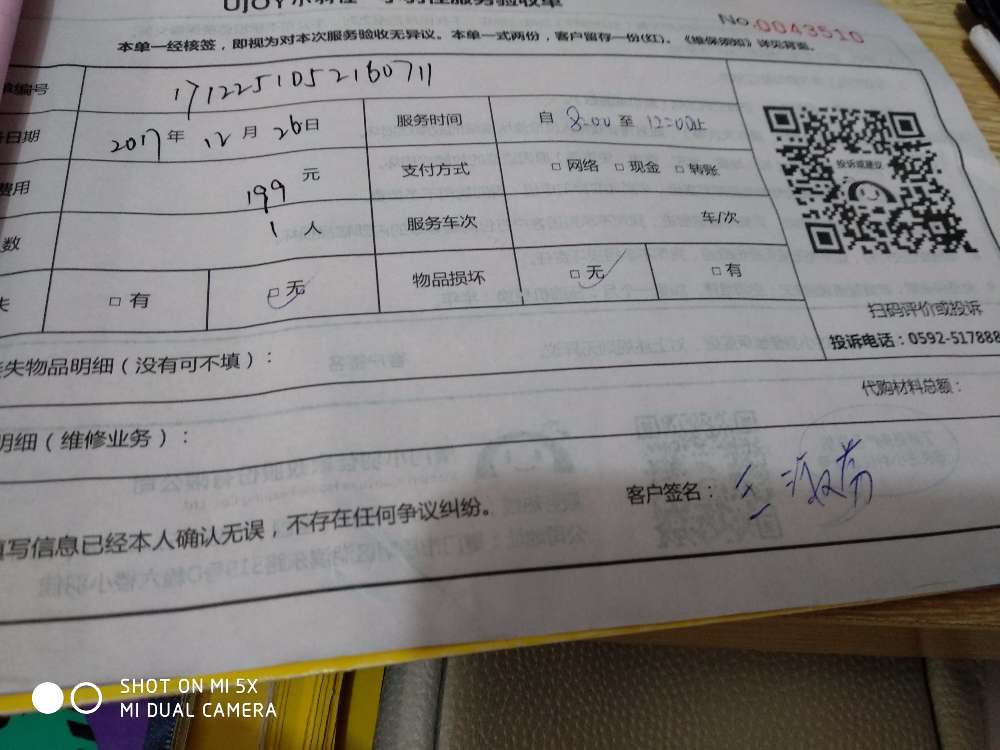 No.0043510
本单一经核签，即视为对本次服务验收无异议。本单一式两份，客户留存一份(红)。《维保须知》详见背面。
编号 1712251052160711
日期 2017年 12月 26日 服务时间 自 8:00 至 12:00止
费用 199 元 支付方式 □ 网络 □ 现金 □ 转账
数 1 人 服务车次 车/次
失 □ 有 □ 无 物品损坏 □ 无 □ 有
投诉或建议
扫码评价或投诉
投诉电话：0592-517888
失物品明细（没有可不填）：
代购材料总额：
明细（维修业务）：
客户签名：
填写信息已经本人确认无误，不存在任何争议纠纷。
SHOT ON MI 5X
MI DUAL CAMERA